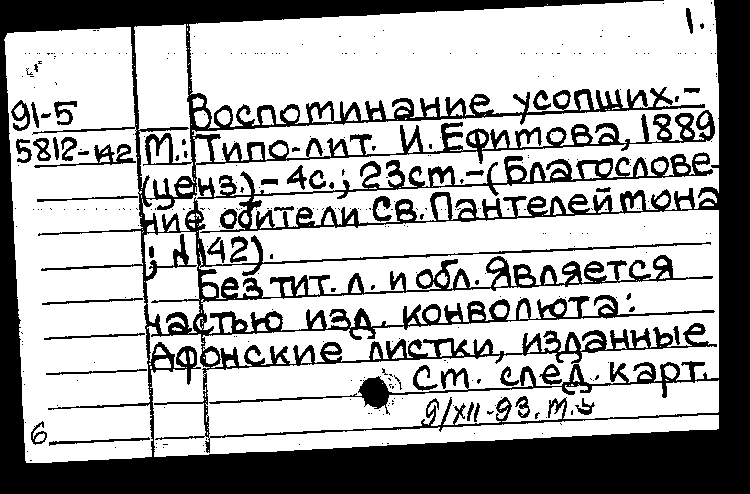 1.
91-5 Воспоминание усопших.-
5812-и2 М.: Типо-лит. И. Ефимова, 1889
(ценз.).- 4с.; 23см.-(Благослове-
ние обители Св. Пантелеймона
; № 142).
Без тит. л. и обл. Является
частью изд. конволюта:
Афонские листки, изданные
См. след. карт.
9/XII-93.
6